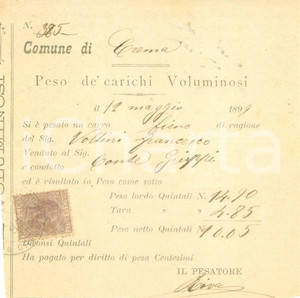 N. 385
Comune di Crema
Peso de' carichi Voluminosi
il 12 maggio 1899
Si è pesato un carro fieno di ragione
del Sig. Vottini Francesco
Venduto al Sig. Conte
e condotto
ed è risultato in Peso come sotto
Peso lordo Quintali N. 14.90
Tara " " 2.85
Peso netto Quintali N. 10.05
Diconsi Quintali
Ha pagato per diritto di pesa Centesimi
IL PESATORE
Riva